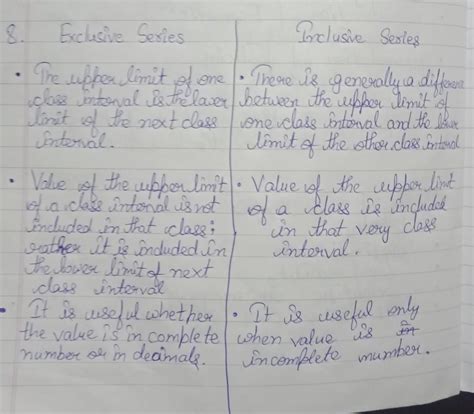 8. Exclusive Series
• The upper limit of one
class interval is the lower
limit of the next class
interval.
• Value of the upper limit
of a class interval is not
included in that class;
rather it is included in
the lower limit of next
class interval
• It is useful whether
the value is in complete
number or in decimals.
Inclusive Series
• There is generally a differenc
between the upper limit of
one class interval and the lower
limit of the other class interval
• Value of the upper limit
of a class is included
in that very class
interval.
• It is useful only
when value is
in complete number.